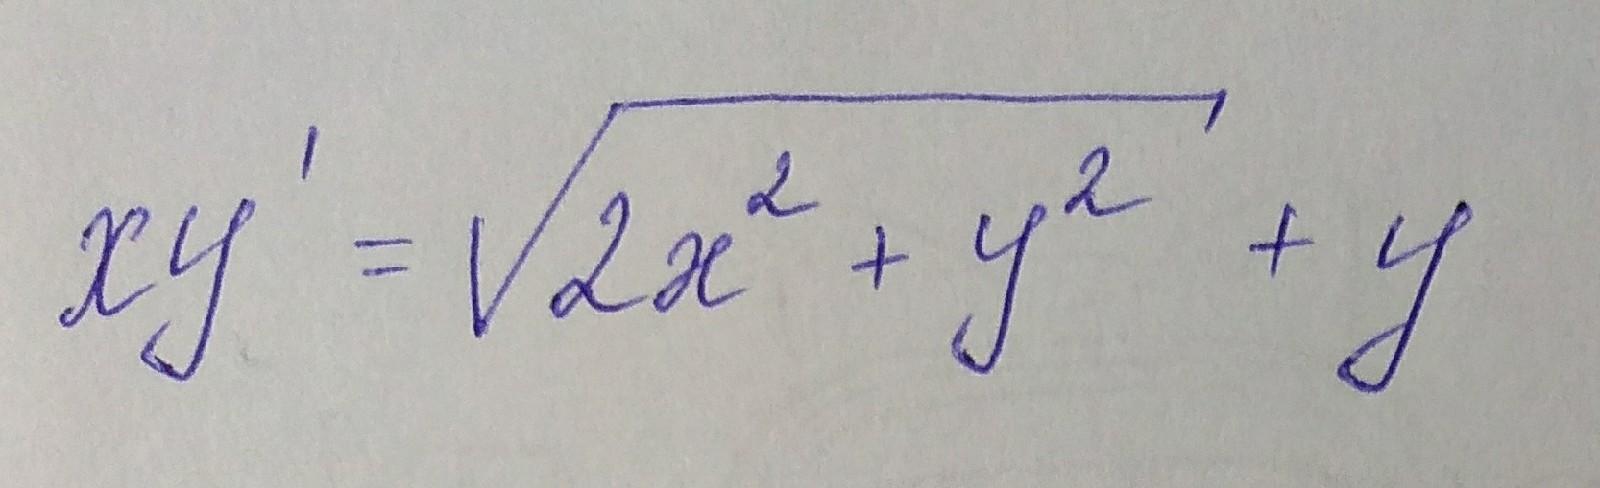 xy' = √(2x² + y²) + y